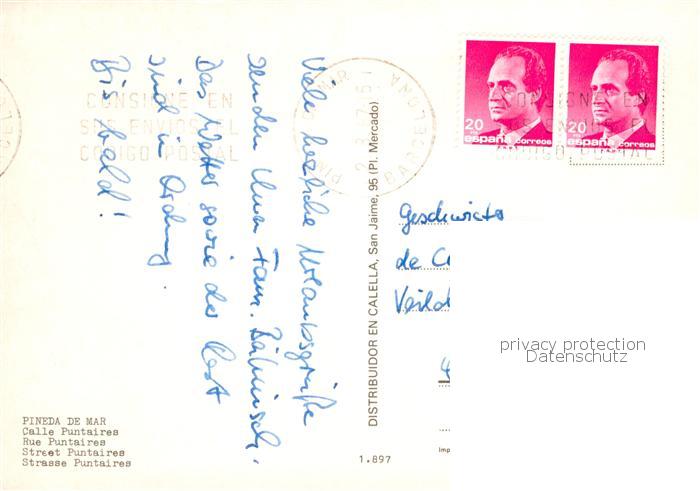 Viele herzliche Urlaubsgrüße
senden Ihnen Fam.
Das Wetter sowie der Rest
sind in Ordnung.
Bis bald!
PINEDA DE MAR
Calle Puntaires
Rue Puntaires
Street Puntaires
Strasse Puntaires
DISTRIBUIDOR EN CALELLA, San Jaime, 95 (Pl. Mercado)
1.897
CONSIGNE EN
SUS ENVIOS EL
CODIGO POSTAL
BARCELONA
20 20
españa correos españa correos
CONSIGNE EN
SUS ENVIOS EL
CODIGO POSTAL
Geschwister
de
privacy protection
Datenschutz
Imp